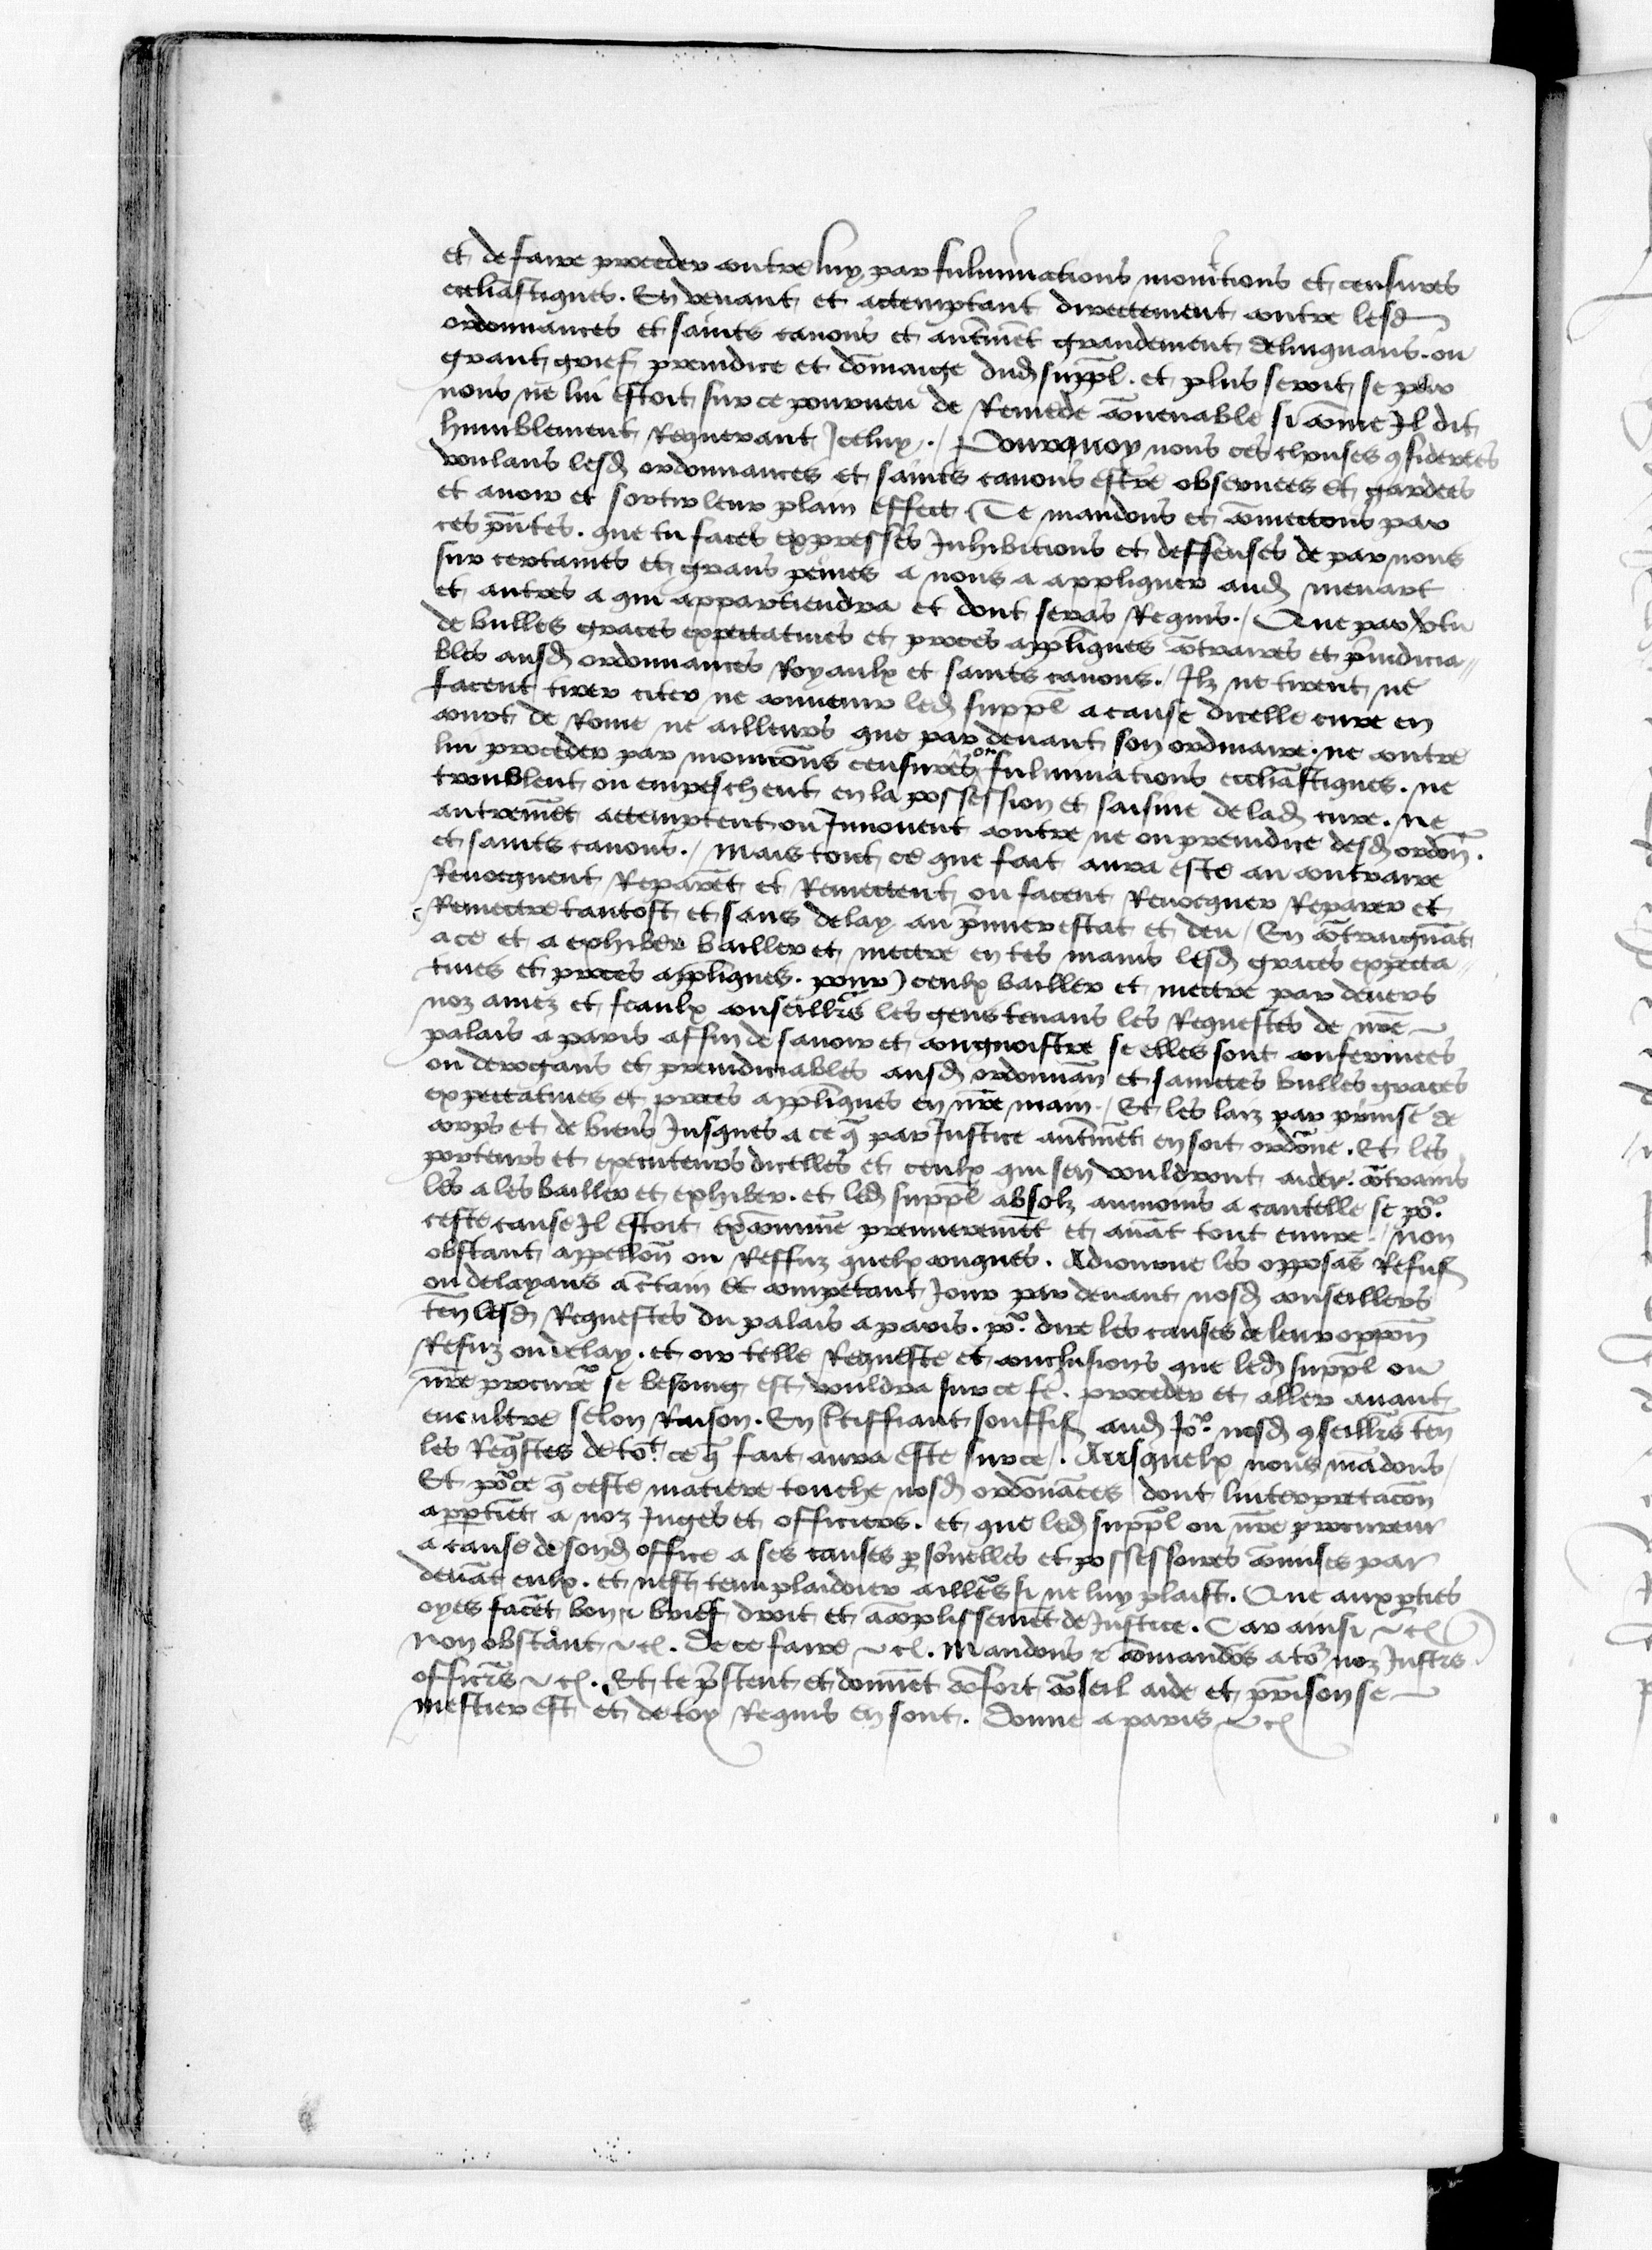 et de faire proceder contre luy par fulminations monitions et censures
eccliastiques. En venant et actemptant directement contre lesd
ordonnances et saints canons et autmēt grandement delinquans. ou
grant grief preiudice et dōmaige dud suppl. et plus seroit se par
nous ne lui estoit sur ce pourueu de Remede cōuenable si cōme Il dit
humblement Requerant Jceluy. / Pourquoy nous ces chouses gsiderees
voulans lesd ordonnances et saints canons estre obseruees et gardees
et auoir et sortir leur plain effect (Te mandons et cōmectons par
ces pñtes. que tu faces expresses Jnhibitions et deffenses de par nous
sur certaines et grans peines a nous a appliquer aud menart
et autres a qui appartiendra et dont seras Requis. / Que par vtu
de bulles graces expectatiues et proces aplīques cōtraires et p̄iudicia〃
bles ausd ordonnances Royaulx et saints canons. / Ilz ne tirent ne
facent tirer citer ne conuenir led suppl a cause dicelle cure en
court de Rome ne ailleurs que par deuant son ordinaire. ne contre
lui proceder par monicōns censures ou fulminations eccliastiques. ne
troublent ou empeschent en la possession et saisine de lad cure. ne
autremēt actemptent ou Jnnouent contre ne ou preiudice desd ordoñ.
et saints canons. / Mais tout ce que fait aura este au contraire
Reuocquent Reparēt et Remectent ou facent Reuocquer Reparer et
Remectre tantost et sans delay au p̄mier estat et deu / En cōtraignāt
a ce et a exhiber bailler et mectre en tes mains lesd graces expecta〃
tiues et proces aplīques. pour Jceulx bailler et mectre par deuers
noz amez et feaulx conseill̄rs les gens tenans les Requestes de nr̄e
palais a paris affin de sauoir et congnoistre se elles sont conferinees
ou derogans et preiudiciables ausd ordonnan̄ et sainctes bulles graces
expectatiues et proces applīques en nr̄e main. / Et les laiz par prinse de
corps et de biens Jusques a ce q̄ par Justice autmēt en soit ordōne. Et les
porteurs et executeurs dicelles et ceulx qui sen vouldront aider. cōtrains
les a les bailler et exhiber. et led suppl absolz aumoins a cautelle se po.
ceste cause Il estoit excōmunie premieremēt et auāt tout euure. / Non
obstant appellon̄ ou Reffuz quelxconques. Adiourne les opposās Refus
ou delayans a c̄tain et competant Jour par deuant nosd conseillers
ten̄ lesd Requestes du palais a paris. po. dire les causes de leur oppon̄
Refuz ou delay. et oir telle Requeste et conclusions que led suppl ou
nr̄e procur̄e se besoing est vouldra sur ce fē. proceder et aller auant
en oultre selon Raison. En c̄tiffiant souffis aud Jo. nosd gseill̄rs ten̄
les Reqstes de to.t ce q̄ fait aura este sur ce. Ausquelx nous mādons
Et po.ce q̄ ceste matiere touche nosd ordonāces dont linterpretacōn
appertiēt a noz Juges et officiers. et que led suppl ou nr̄e procureur
a cause de sond office a ses causes psōnelles et possessoires cōmises par
deuāt eulx. et nest tenu plaidoier aillēs si ne luy plaist. Que aux pties
oyes facēt bon & brief droit et acōplissemēt de Justice. Car ainsi &c
Non obstant &c. De ce faire &c. Mandons & cōmandōs a to.s noz Justrs
officr̄s &c. Et te p̄stent et donnēt cōfort cōseil aide et prison se
mestier est et de toy Requis en sont. Donne a paris &c